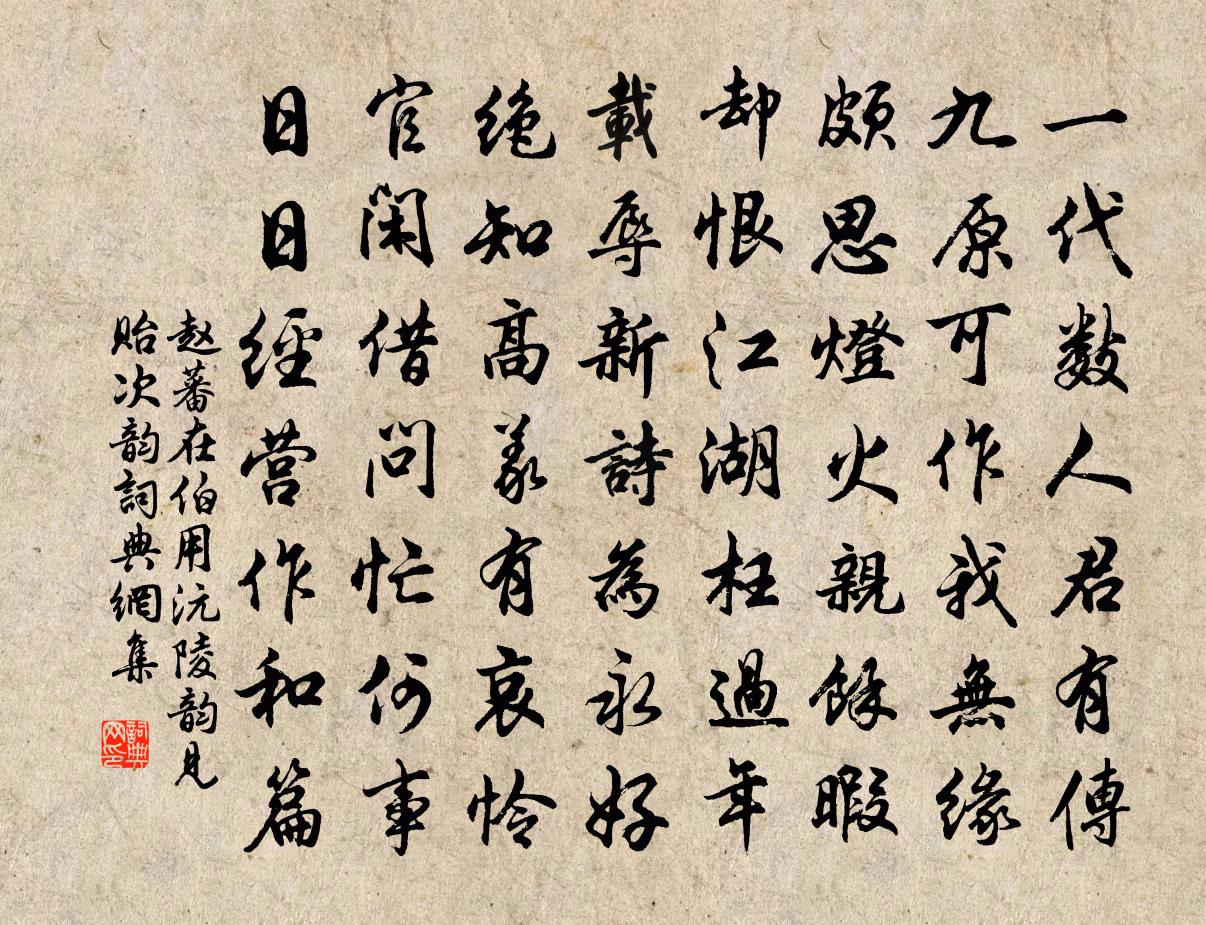 一代数人君有傳
九原可作我無緣
頗思燈火親餘暇
却恨江湖枉過年
載辱新詩為永好
絶知高義有哀怜
官閑借問忙何事
日日經营作和篇
赵蕃在伯用沅陵韵見
貽次韵詞典網集
詞典
网印